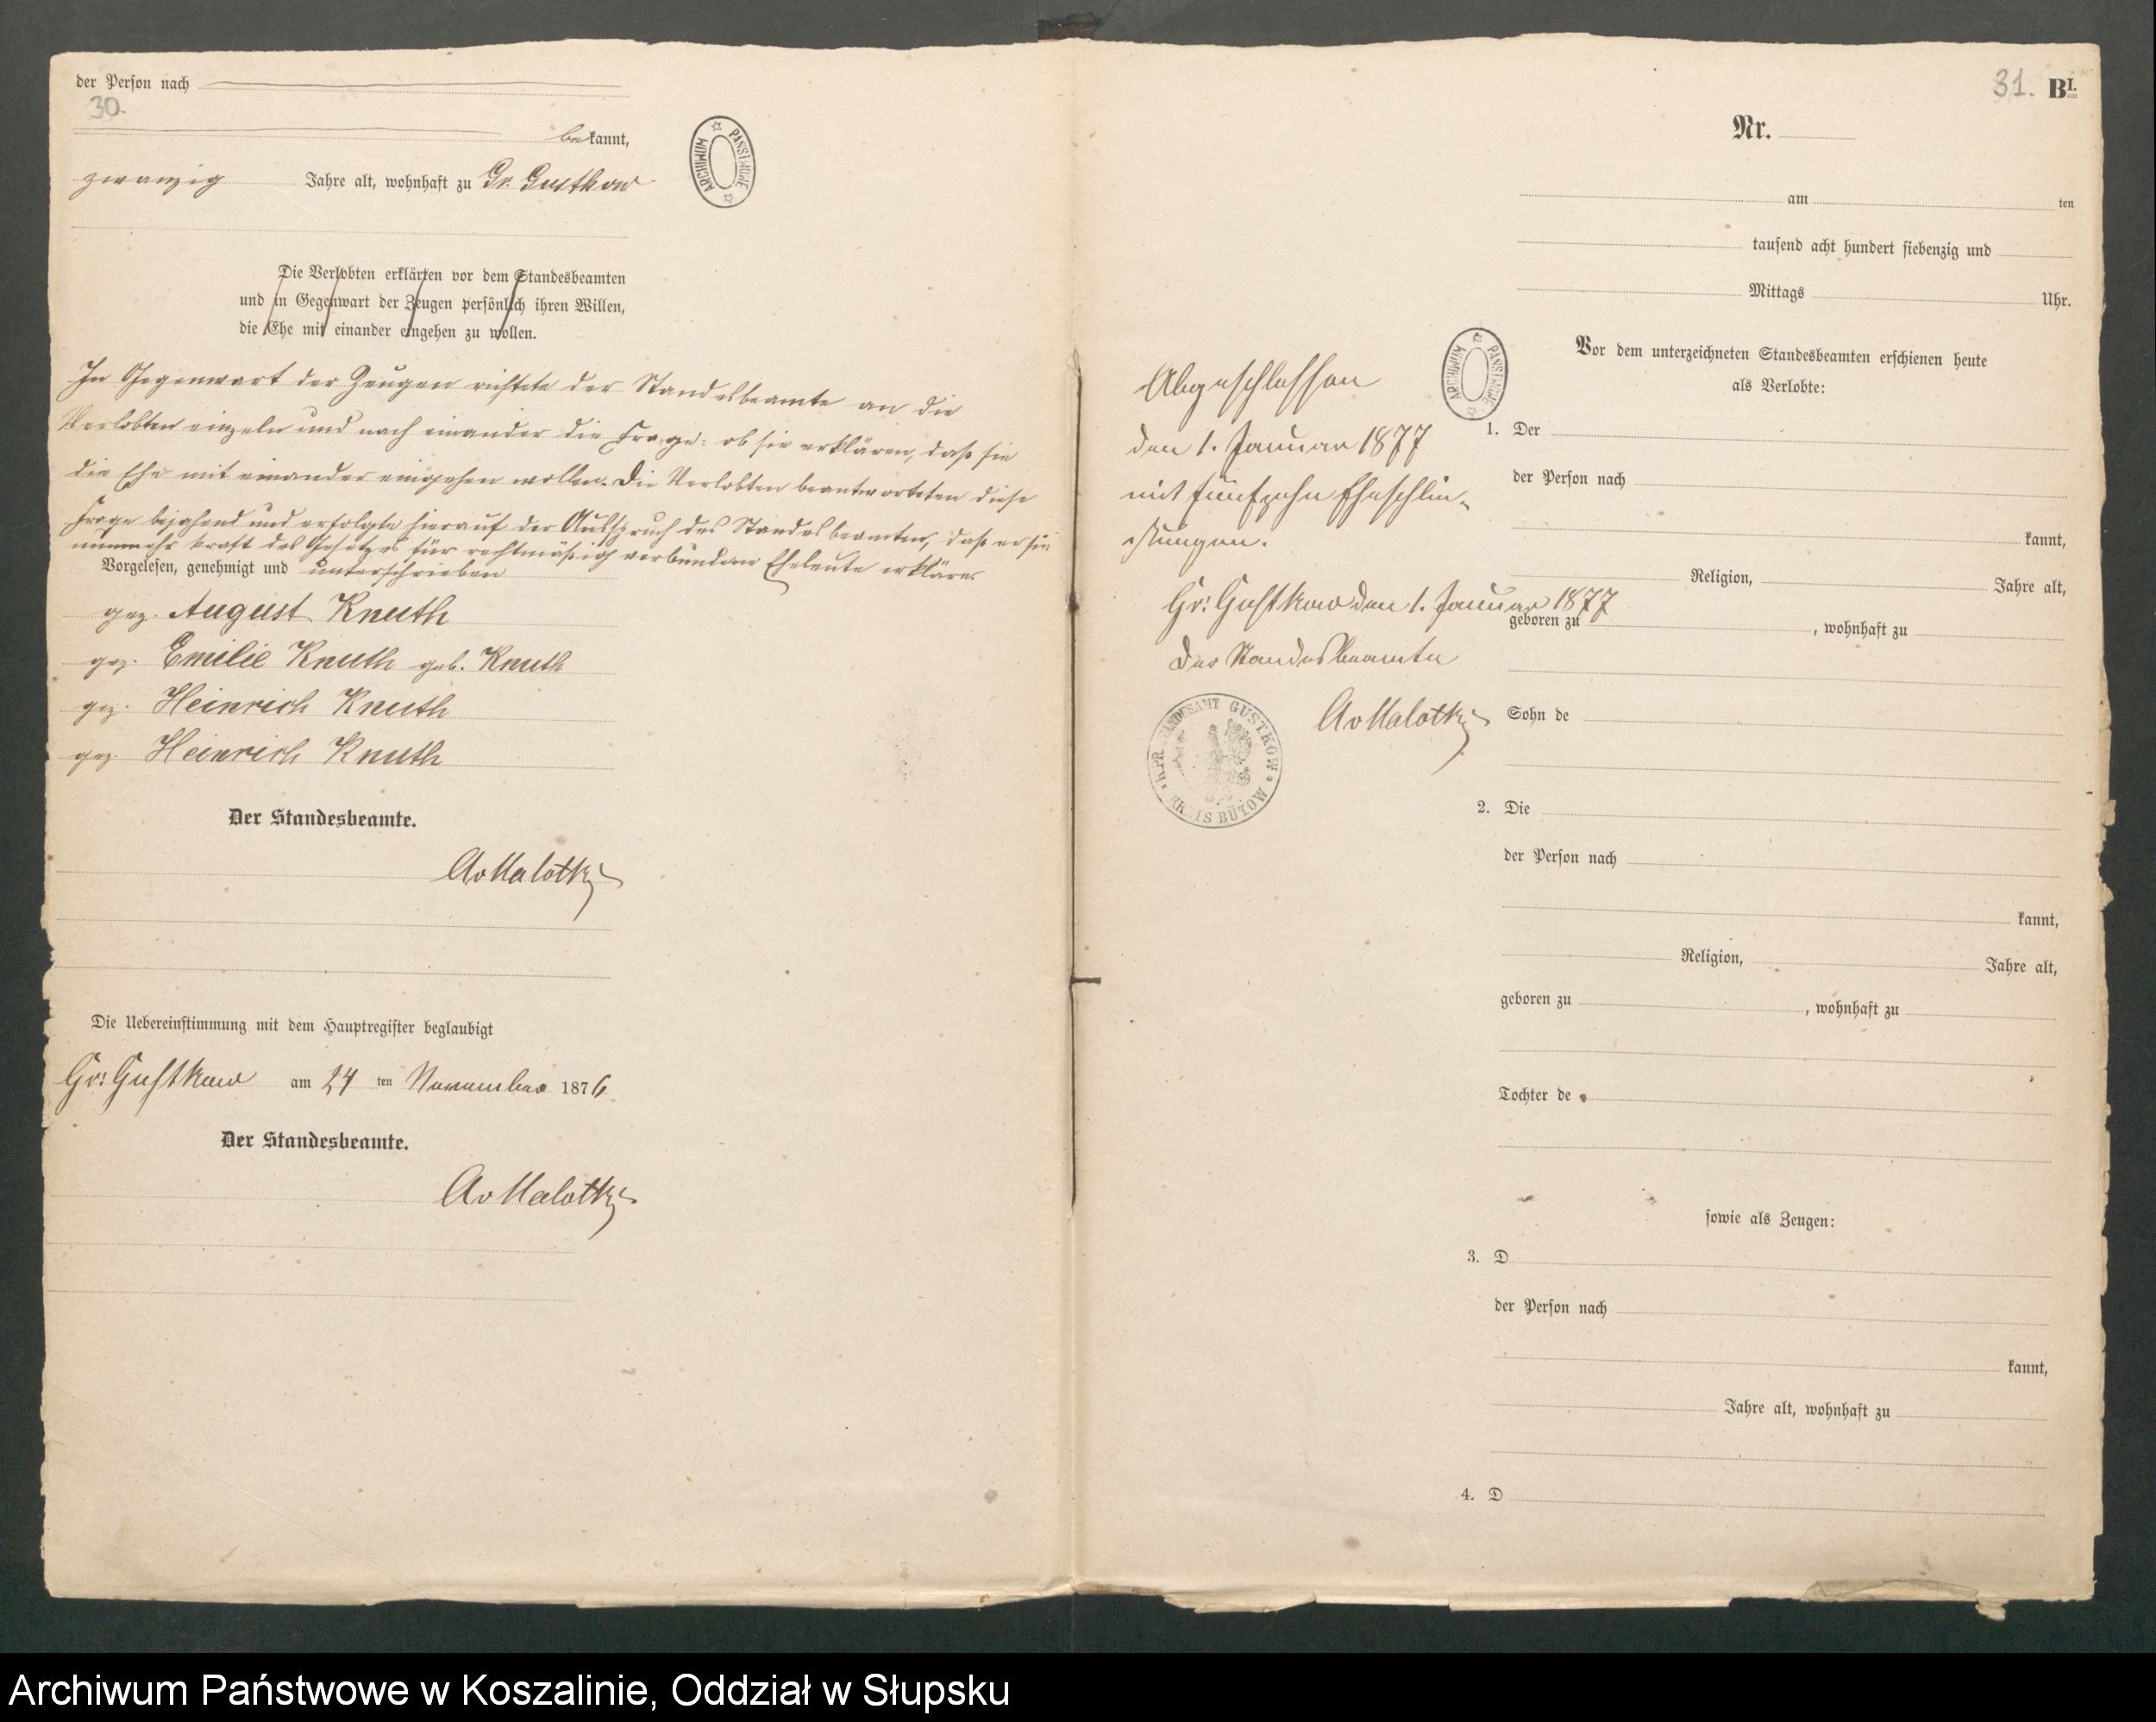 der Person nach
30.
bekannt,
zwanzig Jahre alt, wohnhaft zu Gr. Gustkow
ARCHIWUM PAŃSTWOWE
Die Verlobten erklärten vor dem Standesbeamten
und in Gegenwart der Zeugen persönlich ihren Willen,
die Ehe mit einander eingehen zu wollen.
In Gegenwart der Zeugen richtete der Standesbeamte an die
Verlobten einzeln und nach einander die Frage: ob sie erklären, daß sie
die Ehe mit einander eingehen wollen. Die Verlobten beantworteten diese
Frage bejahend und erfolgte hierauf der Ausspruch des Standesbeamten, daß er sie
nunmehr kraft des Gesetzes für rechtmäßig verbundene Eheleute erkläre.
Vorgelesen, genehmigt und unterschrieben
gez. August Knuth
gez. Emilie Knuth geb. Knuth
gez. Heinrich Knuth
gez. Heinrich Knuth
Der Standesbeamte.
AvMalottky
Die Uebereinstimmung mit dem Hauptregister beglaubigt
Gr: Gustkow am 24 ten November 1876
Der Standesbeamte.
AvMalottky
31. B1.
Nr.
am ten
tausend acht hundert siebenzig und
Mittags Uhr.
Vor dem unterzeichneten Standesbeamten erschienen heute
als Verlobte:
ARCHIWUM PAŃSTWOWE
Abgeschlossen
den 1. Januar 1877
mit fünfzehn Eheschlie-
ßungen.
Gr: Gustkow den 1. Januar 1877
Der Standesbeamte
AvMalottky
KPR. STANDESAMT GUSTKOW
KREIS BÜTOW
1. Der
der Person nach
kannt,
Religion, Jahre alt,
geboren zu , wohnhaft zu
Sohn de
2. Die
der Person nach
kannt,
Religion, Jahre alt,
geboren zu , wohnhaft zu
Tochter de
sowie als Zeugen:
3. D
der Person nach
kannt,
Jahre alt, wohnhaft zu
4. D
Archiwum Państwowe w Koszalinie, Oddział w Słupsku